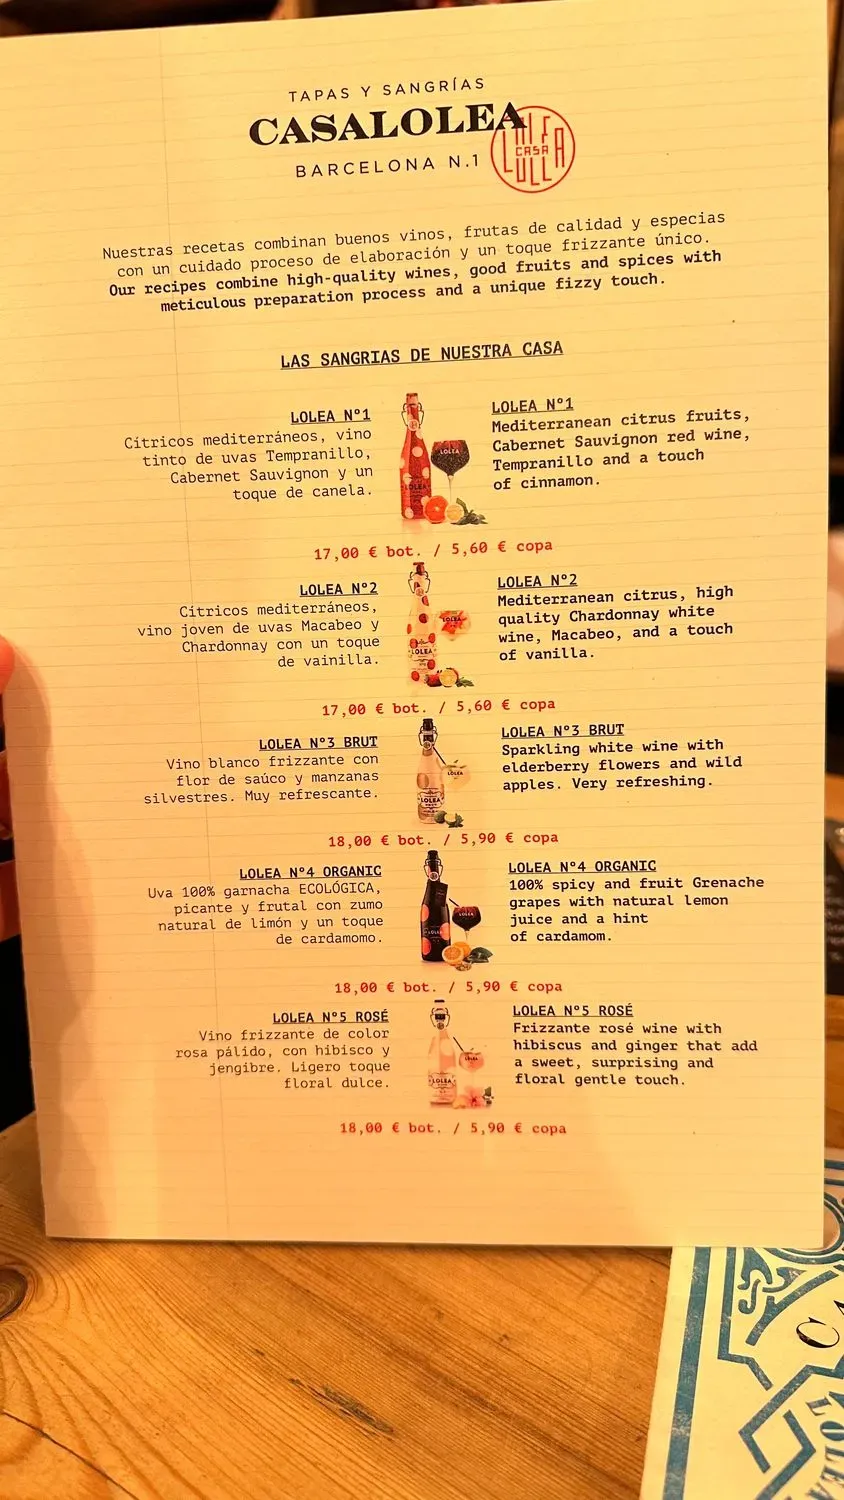 TAPAS Y SANGRÍAS
CASALOLEA
BARCELONA N.1
CASA
LOLEA
Nuestras recetas combinan buenos vinos, frutas de calidad y especias
con un cuidado proceso de elaboración y un toque frizzante único.
Our recipes combine high-quality wines, good fruits and spices with
meticulous preparation process and a unique fizzy touch.
LAS SANGRIAS DE NUESTRA CASA
LOLEA Nº1
Cítricos mediterráneos, vino
tinto de uvas Tempranillo,
Cabernet Sauvignon y un
toque de canela.
LOLEA
LOLEA
LOLEA Nº1
Mediterranean citrus fruits,
Cabernet Sauvignon red wine,
Tempranillo and a touch
of cinnamon.
17,00 € bot. / 5,60 € copa
LOLEA Nº2
Cítricos mediterráneos,
vino joven de uvas Macabeo y
Chardonnay con un toque
de vainilla.
LOLEA
LOLEA
LOLEA Nº2
Mediterranean citrus, high
quality Chardonnay white
wine, Macabeo, and a touch
of vanilla.
17,00 € bot. / 5,60 € copa
LOLEA Nº3 BRUT
Vino blanco frizzante con
flor de saúco y manzanas
silvestres. Muy refrescante.
LOLEA
LOLEA
LOLEA Nº3 BRUT
Sparkling white wine with
elderberry flowers and wild
apples. Very refreshing.
18,00 € bot. / 5,90 € copa
LOLEA Nº4 ORGANIC
Uva 100% garnacha ECOLÓGICA,
picante y frutal con zumo
natural de limón y un toque
de cardamomo.
LOLEA
LOLEA
LOLEA Nº4 ORGANIC
100% spicy and fruit Grenache
grapes with natural lemon
juice and a hint
of cardamom.
18,00 € bot. / 5,90 € copa
LOLEA Nº5 ROSÉ
Vino frizzante de color
rosa pálido, con hibisco y
jengibre. Ligero toque
floral dulce.
LOLEA
LOLEA
LOLEA Nº5 ROSÉ
Frizzante rosé wine with
hibiscus and ginger that add
a sweet, surprising and
floral gentle touch.
18,00 € bot. / 5,90 € copa
CA
LOLEA